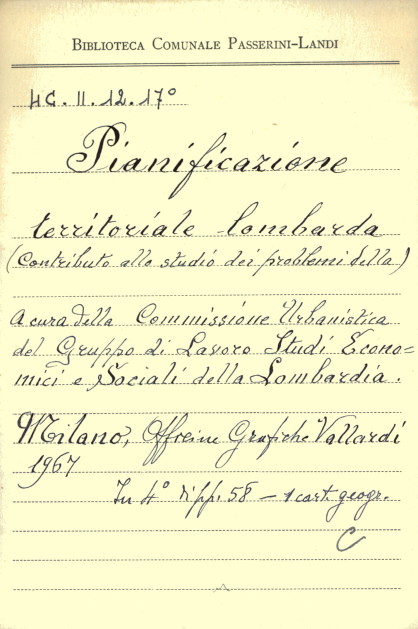 BIBLIOTECA COMUNALE PASSERINI-LANDI
4C. II. 12. 17°
Pianificazione
territoriale lombarda
(Contributo allo studio dei problemi della)
A cura della Commissione Urbanistica
del Gruppo di Lavoro Studi Econo=
mici e Sociali della Lombardia.
Milano, Officine Grafiche Vallardi
1967
In 4° di pp. 58 – 1 cart. geogr.
C